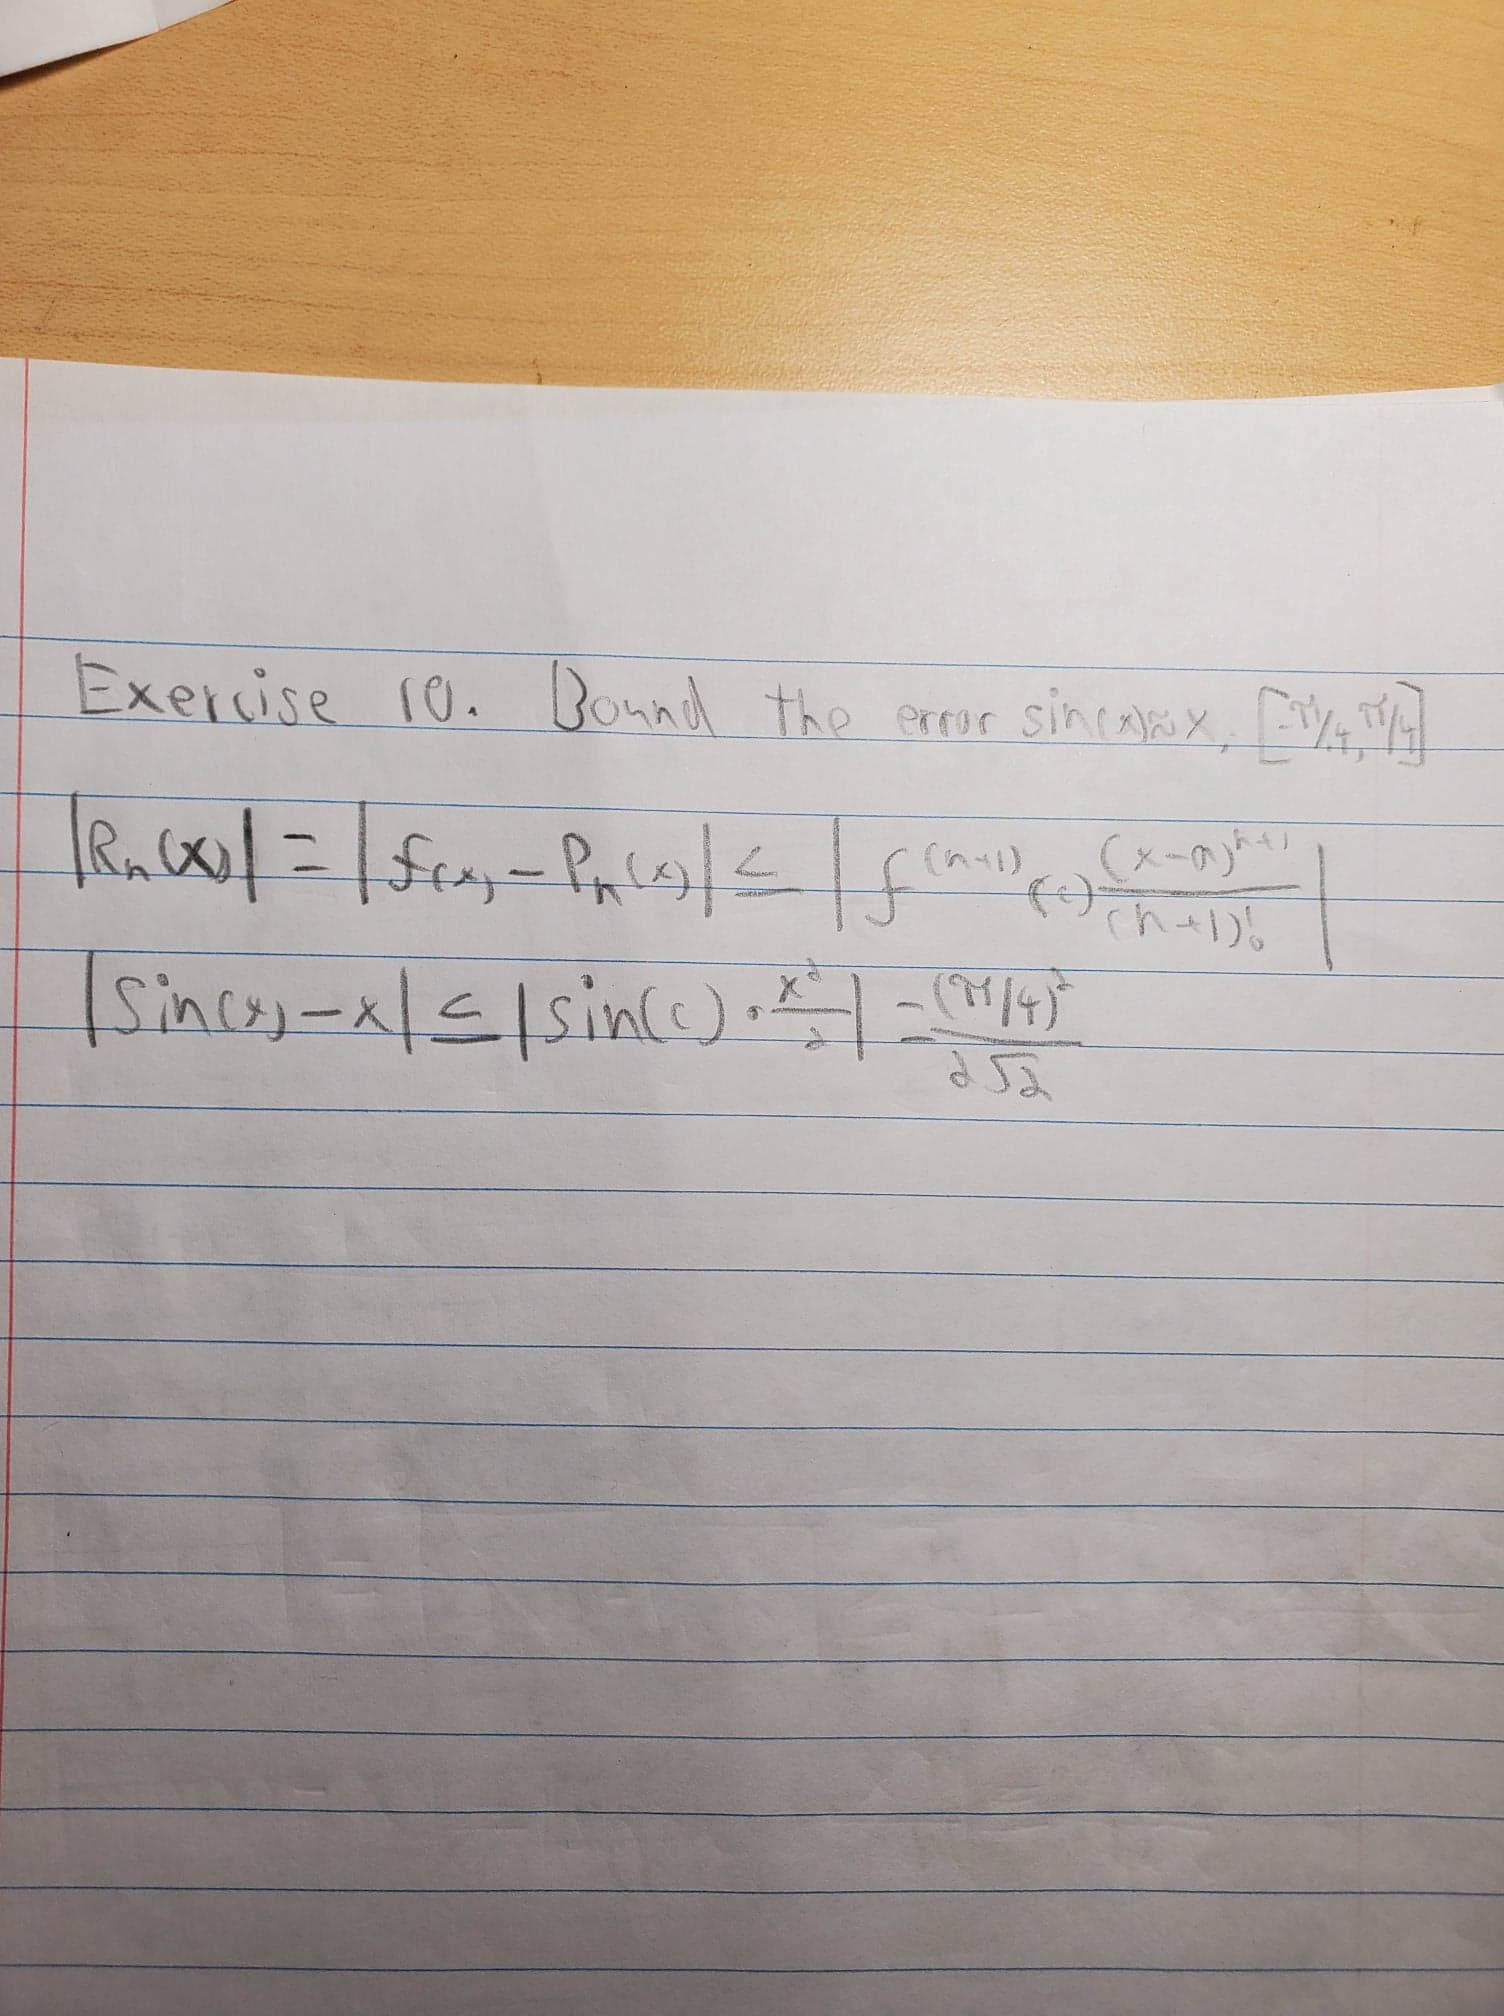 Exercise 10. Bound the error sin(x)≈x, [-π/4, π/4]
|Rn(x)| = |f(x) - Pn(x)| ≤ |f^(n+1)(c) (x-a)^n+1/(n+1)!|
|Sin(x) - x| ≤ |sin(c) · x²/2| = (π/4)²/2√2